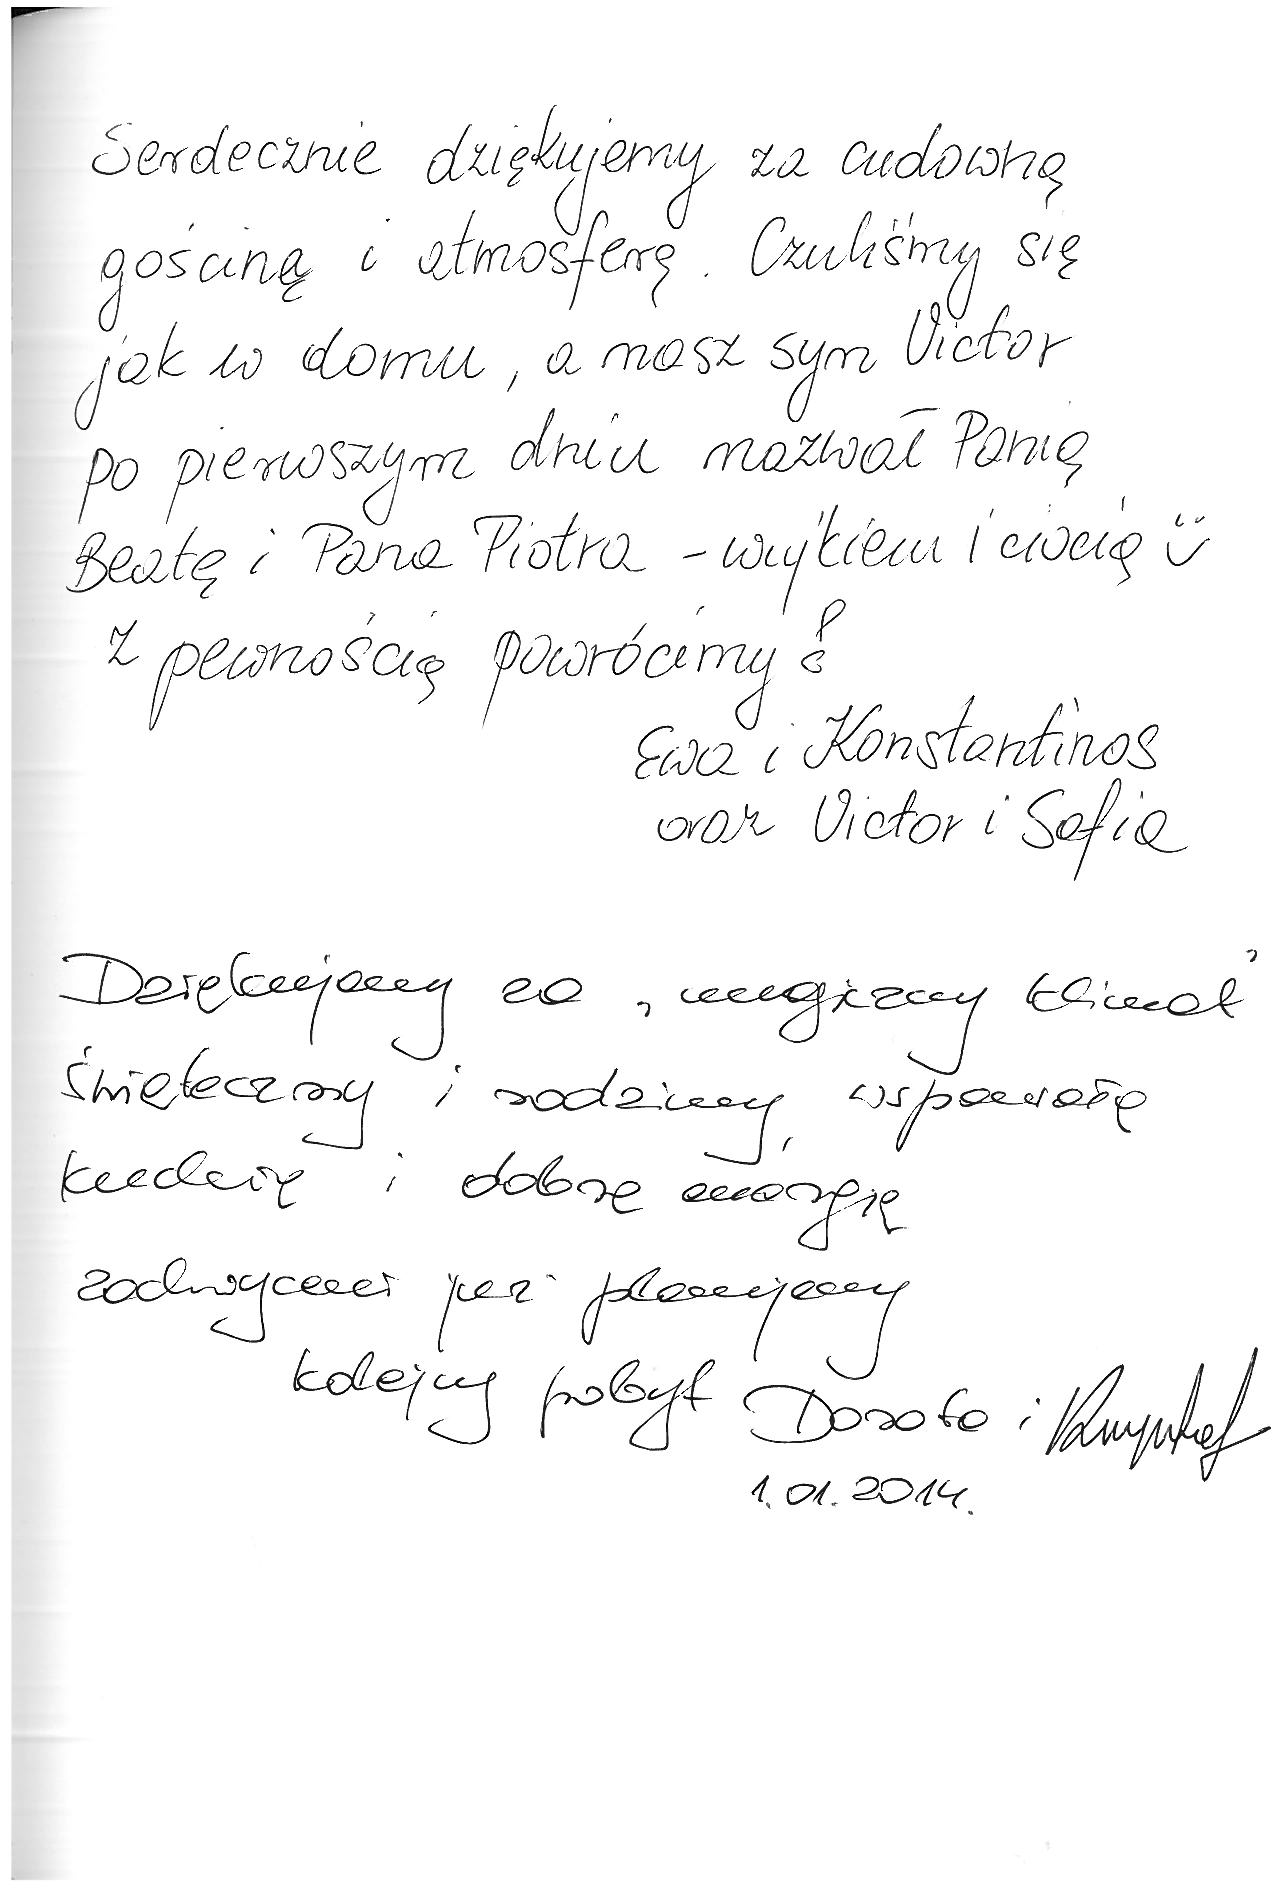 Serdecznie dziękujemy za cudowną
gościnę i atmosferę. Czuliśmy się
jak w domu, a nasz syn Victor
po pierwszym dniu nazwał Panią
Beatę i Pana Piotra - wujkiem i ciocią ü
Z pewnością powrócimy!
Ewa i Konstantinos
oraz Victor i Sofia
Dziękujemy za „magiczny klimat”
świąteczny i rodzinny, wspaniałą
kuchnię i dobrą energię
zachwyceni już planujemy
kolejny pobyt Dorota i Krzysztof
1.01.2014.